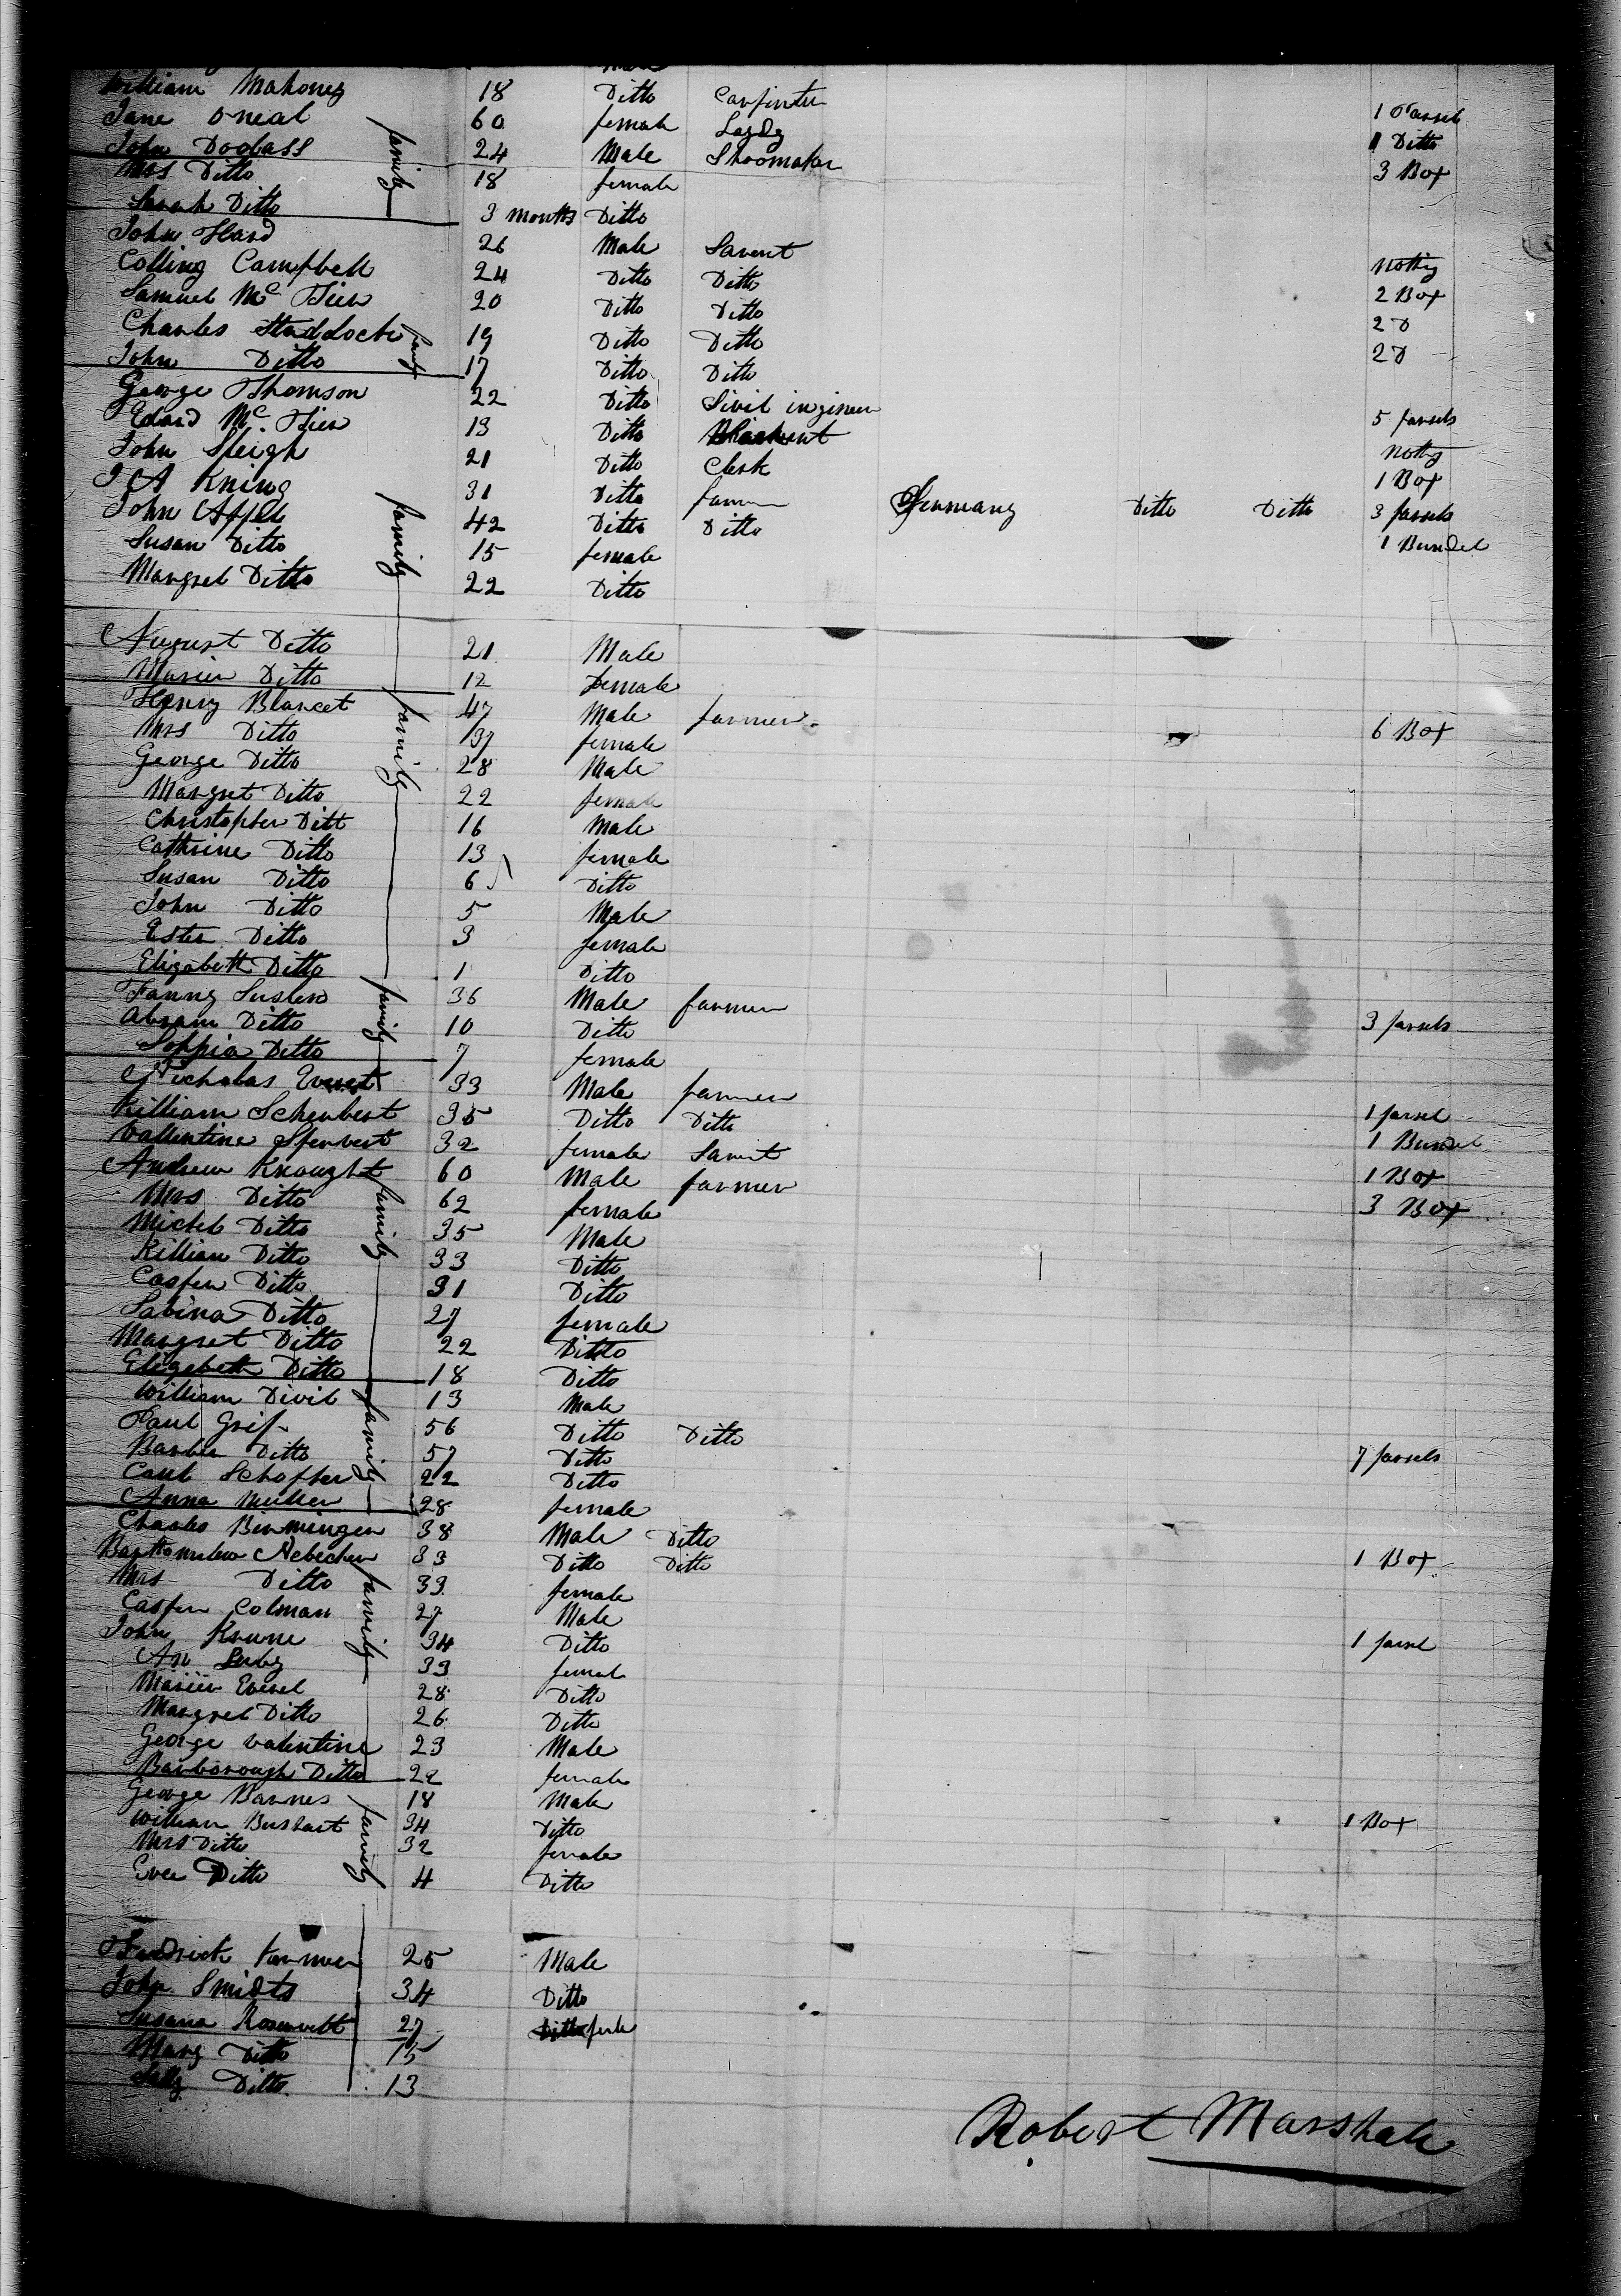 William Mahoney 18 Ditto Carpinter 1 Parsel
Jane Oneal 60 female Laydy 1 Ditto
John Doglass 24 Male Shoomaker 3 Box
Mrs Ditto 18 female
Sarah Ditto 3 months Ditto
family
John Hard 26 Male Sarvent Nothg
Colling Campbell 24 Ditto Ditto 2 Box
Samuel Mc 20 Ditto Ditto 2 D
Charles 19 Ditto Ditto 2 D
John Ditto 17 Ditto Ditto
George Thomson 22 Ditto Sivil inginer 5 parsels
Edard Mc 13 Ditto Nothg
John Sleigh 21 Ditto Clerk 1 Box
J A Kning 31 Ditto farmer Germany Ditto Ditto 3 parsels
John Appel 42 Ditto Ditto 1 Bundel
Susan Ditto 15 female
Margret Ditto 22 Ditto
family
August Ditto 21 Male
Marier Ditto 12 female
Henry Blancet 47 Male farmer 6 Box
Mrs Ditto 37 female
George Ditto 28 Male
family
Margret Ditto 22 female
Christopher Ditt 16 Male
Cathrine Ditto 13 female
Susan Ditto 6 Ditto
John Ditto 5 Male
Ester Ditto 3 female
Elizabeth Ditto 1 Ditto
Fanny 36 Male farmer 3 parsels
Abram Ditto 10 Ditto
Sophia Ditto 7 female
family
Nicholas 33 Male farmer 1 parsel
Killiam Schenbert 35 Ditto Ditto 1 Bundel
Vallentine 32 female Sarvnt 1 Box
Andrew Knought 60 Male farmer 3 Box
Mrs Ditto 62 female
Michel Ditto 35 Male
family
Killian Ditto 33 Ditto
Casper Ditto 31 Ditto
Sabina Ditto 27 female
Margret Ditto 22 Ditto
Elizabeth Ditto 18 Ditto
William Divil 13 Male
Paul Grif 56 Ditto Ditto 7 parsels
Ditto 57 Ditto
family
Schoffer 22 Ditto
Anna Muller 28 female
Charles Birmingen 38 Male Ditto 1 Box
Barthomelew 33 Ditto Ditto
Mrs Ditto 33 female
Casper Colman 27 Male
family
John Krune 34 Ditto 1 parsel
An 33 femal
28 Ditto
Margret Ditto 26 Ditto
George Valentine 23 Male
Barborough Ditto 22 female
George Barnes 18 Male
William 34 Ditto 1 Box
Mrs Ditto 32 female
Evee Ditto 4 Ditto
family
Fredrick 25 Male
John Smidts 34 Ditto
Susana 27
Mary Ditto 15
Ditto 13
Robert Marshale